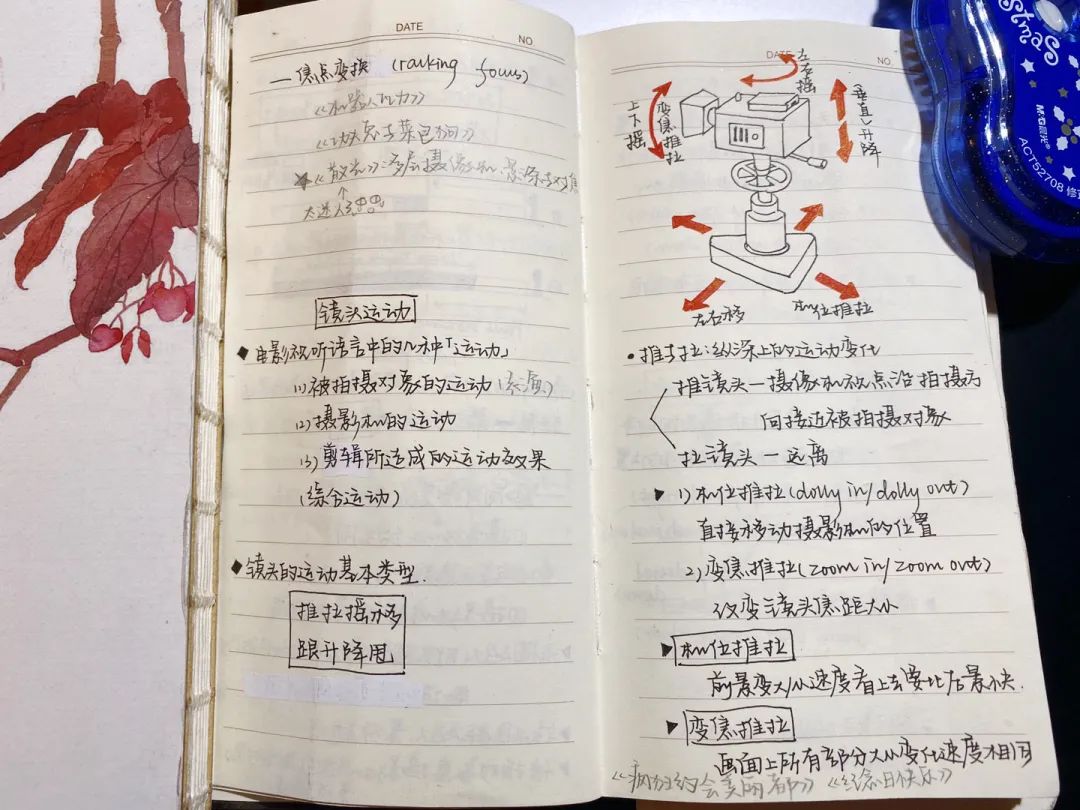 DATE
NO
— 焦点变换 (racking focus)
《机器人瓦力》
《功夫熊猫》
★《散光》:多层摄像机:景深与对焦
↑
太迷人
镜头运动
◆ 电影视听语言中的几种「运动」
(1) 被拍摄对象的运动
(2) 摄影机的运动
(3) 剪辑所达成的运动效果
(综合运动)
◆ 镜头的运动基本类型.
推拉摇移
跟升降甩
DATE
NO.
左右摇
上下摇
变焦推拉
垂直升降
左右移
机位推拉
• 推与拉:纵深上的运动变化
推镜头—摄像机视点沿拍摄方
向接近被拍摄对象
拉镜头—远离
▶ 1) 机位推拉(dolly in/dolly out)
直接移动摄影机的位置
2) 变焦推拉(zoom in/zoom out)
改变镜头焦距大小
▶ 机位推拉
前景变大小速度看上去要比后景快.
▶ 变焦推拉
画面上所有部分大小变化速度相同
《疯狂约会美丽都》《纪念日快乐》
stmas
M&G晨光
ACT52708 修